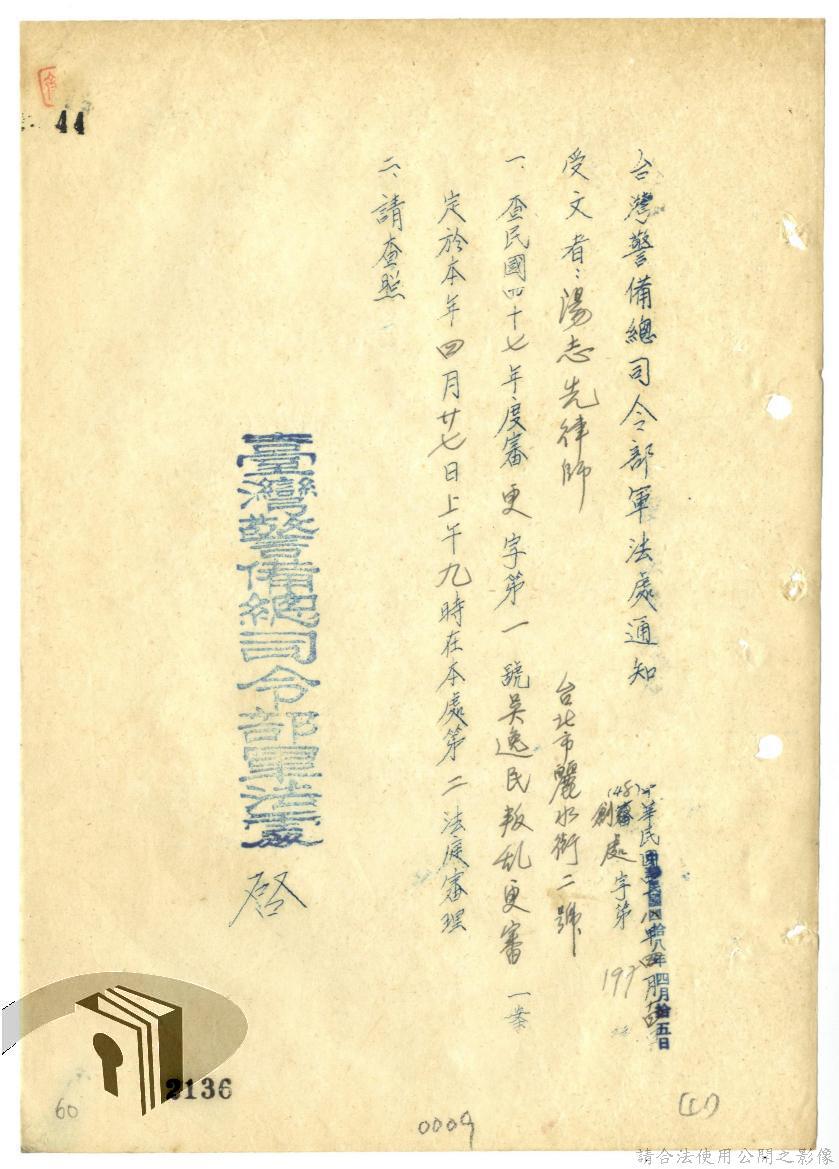 台灣警備總司令部軍法處通知
中華民國四十八年四月
中華民國四拾八年四月拾五日
(48)審處字第
創
197
受文者：湯志先律師
台北市麗水街二號
一、查民國四十七年度審更字第一號吳逸民叛乱更審一案
定於本年四月廿七日上午九時在本處第二法庭審理
二、請查照
臺灣警備總司令部軍法處
啓
44
2136
60
0009
請合法使用公開之影像